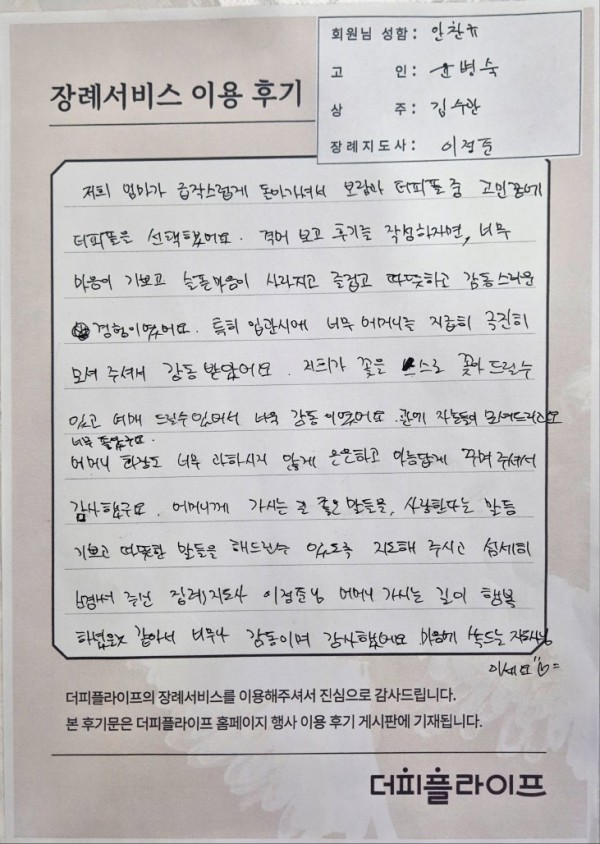 장례서비스 이용 후기
회원님 성함: 안찬규
고 인: 윤병숙
상 주: 김수환
장례지도사: 이정준
저희 엄마가 급작스럽게 돌아가셔서 보람과 더피플 중 고민끝에
더피플은 선택했어요. 격어 보고 후기를 작성하자면, 너무
마음이 기쁘고 슬픈마음이 사라지고 즐겁고 따뜻하고 감동스러운
경험이였어요. 특히 입관시에 너무 어머니를 지극히 극진히
모셔 주셔서 감동 받았어요. 저희가 꽃은 스스로 꽂아 드릴수
있고 예배 드릴수있어서 너무 감동이였어요. 관에 자녀들이
너무 좋았구요.
어머니 화장도 너무 과하시지 않게 은은하고 아름답게 꾸며 주셔서
감사했구요. 어머니께 가시는 길 좋은 말들을, 사랑한다는 말등
기쁘고 따뜻한 말들을 해드릴수 있도록 지도해 주시고 섬세히
주신 장례지도사 이정준님 어머니 가시는 길이 행복
같아서 너무나 감동이며 감사했어요 마음에 쏙드는
이세요
더피플라이프의 장례서비스를 이용해주셔서 진심으로 감사드립니다.
본 후기문은 더피플라이프 홈페이지 행사 이용 후기 게시판에 기재됩니다.
더피플라이프